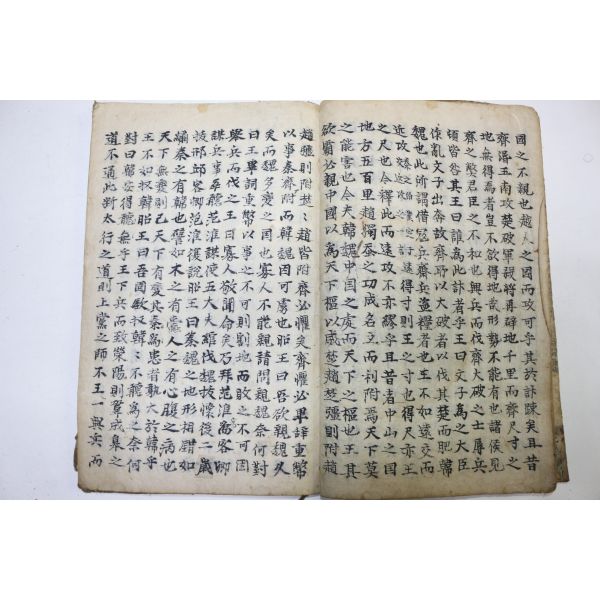 國之不親也越人之國而攻可乎其於計踈矣且昔
齊湣王南攻楚破軍殺將再辟地千里而齊尺寸之
地無得焉者豈不欲得地哉形勢不能有也諸侯見
齊之獘君臣之不和也興兵而伐齊大破之士辱兵
頓皆咎其王曰誰為此計者乎王曰文子為之大臣
作亂文子出奔故齊所以大破者以伐其楚而肥韓
魏也此所謂借寇兵齎盜糧者也王不如遠交而
近攻得寸則王之寸也得尺亦王
之尺也今釋此而遠攻不亦繆乎且昔者中山之國
地方五百里趙獨吞之功成名立而利附焉天下莫
之能害也今夫韓魏中國之處而天下之樞也王其
欲霸必親中國以為天下樞以威楚趙楚强則附趙
趙强則附楚楚趙皆附齊必懼矣齊懼必卑辞重幣
以事秦齊附而韓魏因可虜也昭王曰吾欲親魏久
矣而魏多變之國也寡人不能親請問親魏奈何對
曰王卑詞重幣以事之不可則割地而賂之不可因
舉兵而伐之王曰寡人敬聞命矣乃拜范淮為客卿
謀兵事卒聽范淮謀使五大夫綰伐魏拔懷後二歲
拔邢丘客卿范淮復說昭王曰秦魏之地形相錯如
繡秦之有韓也譬如木之有蠹人之有心腹之病也
天下無變則已天下有變其秦為患者孰大於韓乎
王不如收韓昭王曰吾固欲收韓韓不聽為之奈何
對曰韓安得無聽乎王下兵而攻滎陽則鞏成皐之
道不通北斷太行之道則上黨之師不下王一興兵而